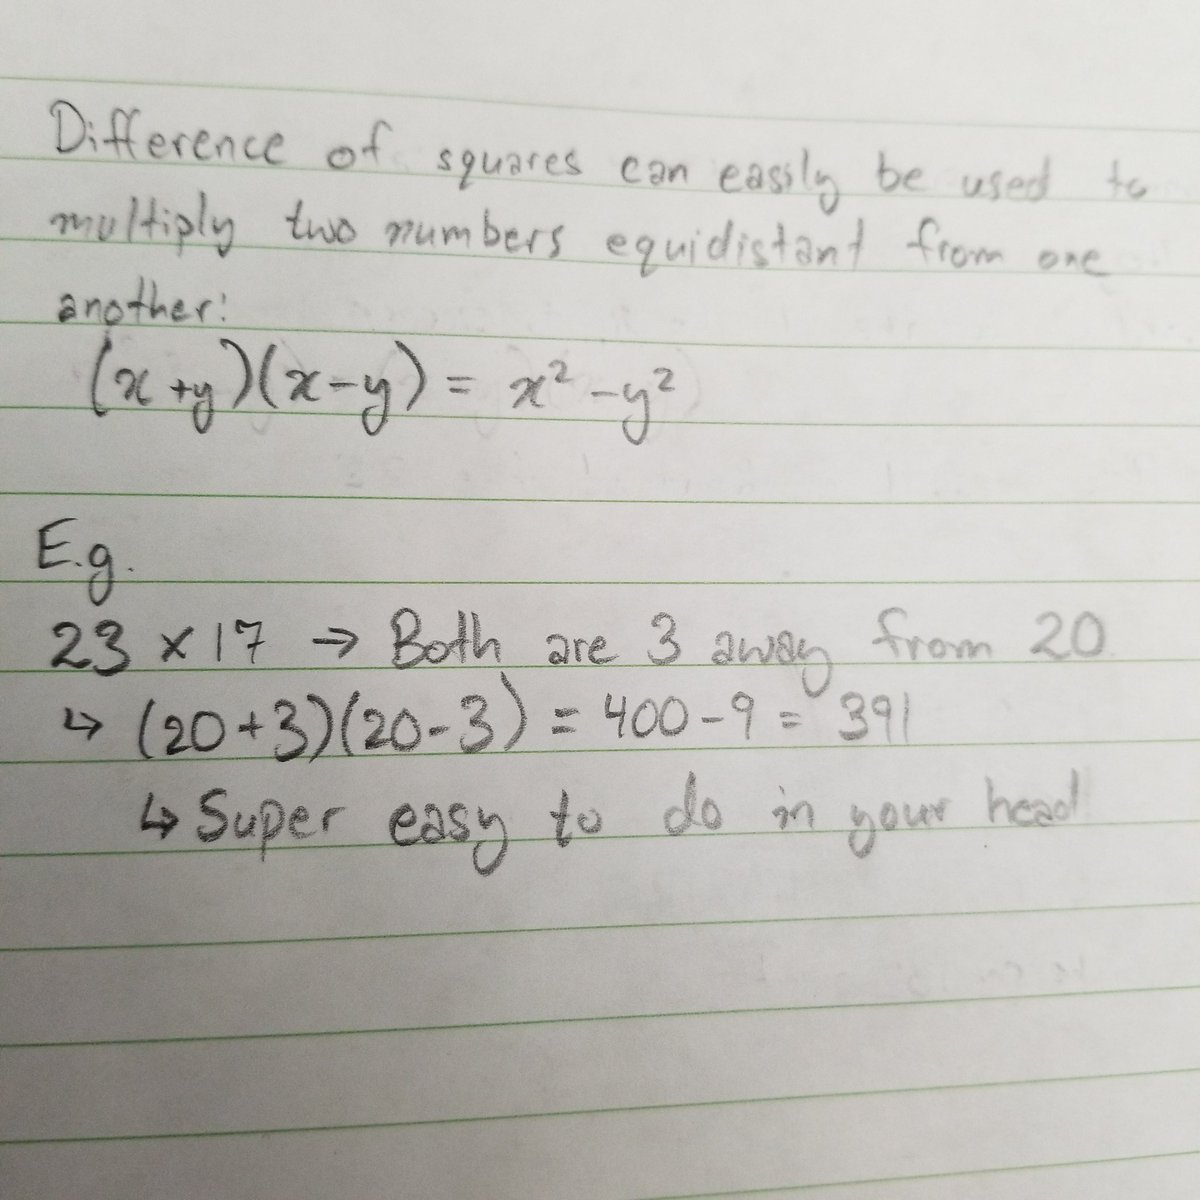 Difference of squares can easily be used to
multiply two numbers equidistant from one
another:
(x+y)(x-y) = x² - y²
E.g.
23 × 17 → Both are 3 away from 20
↳ (20+3)(20-3) = 400-9 = 391
↳ Super easy to do in your head!